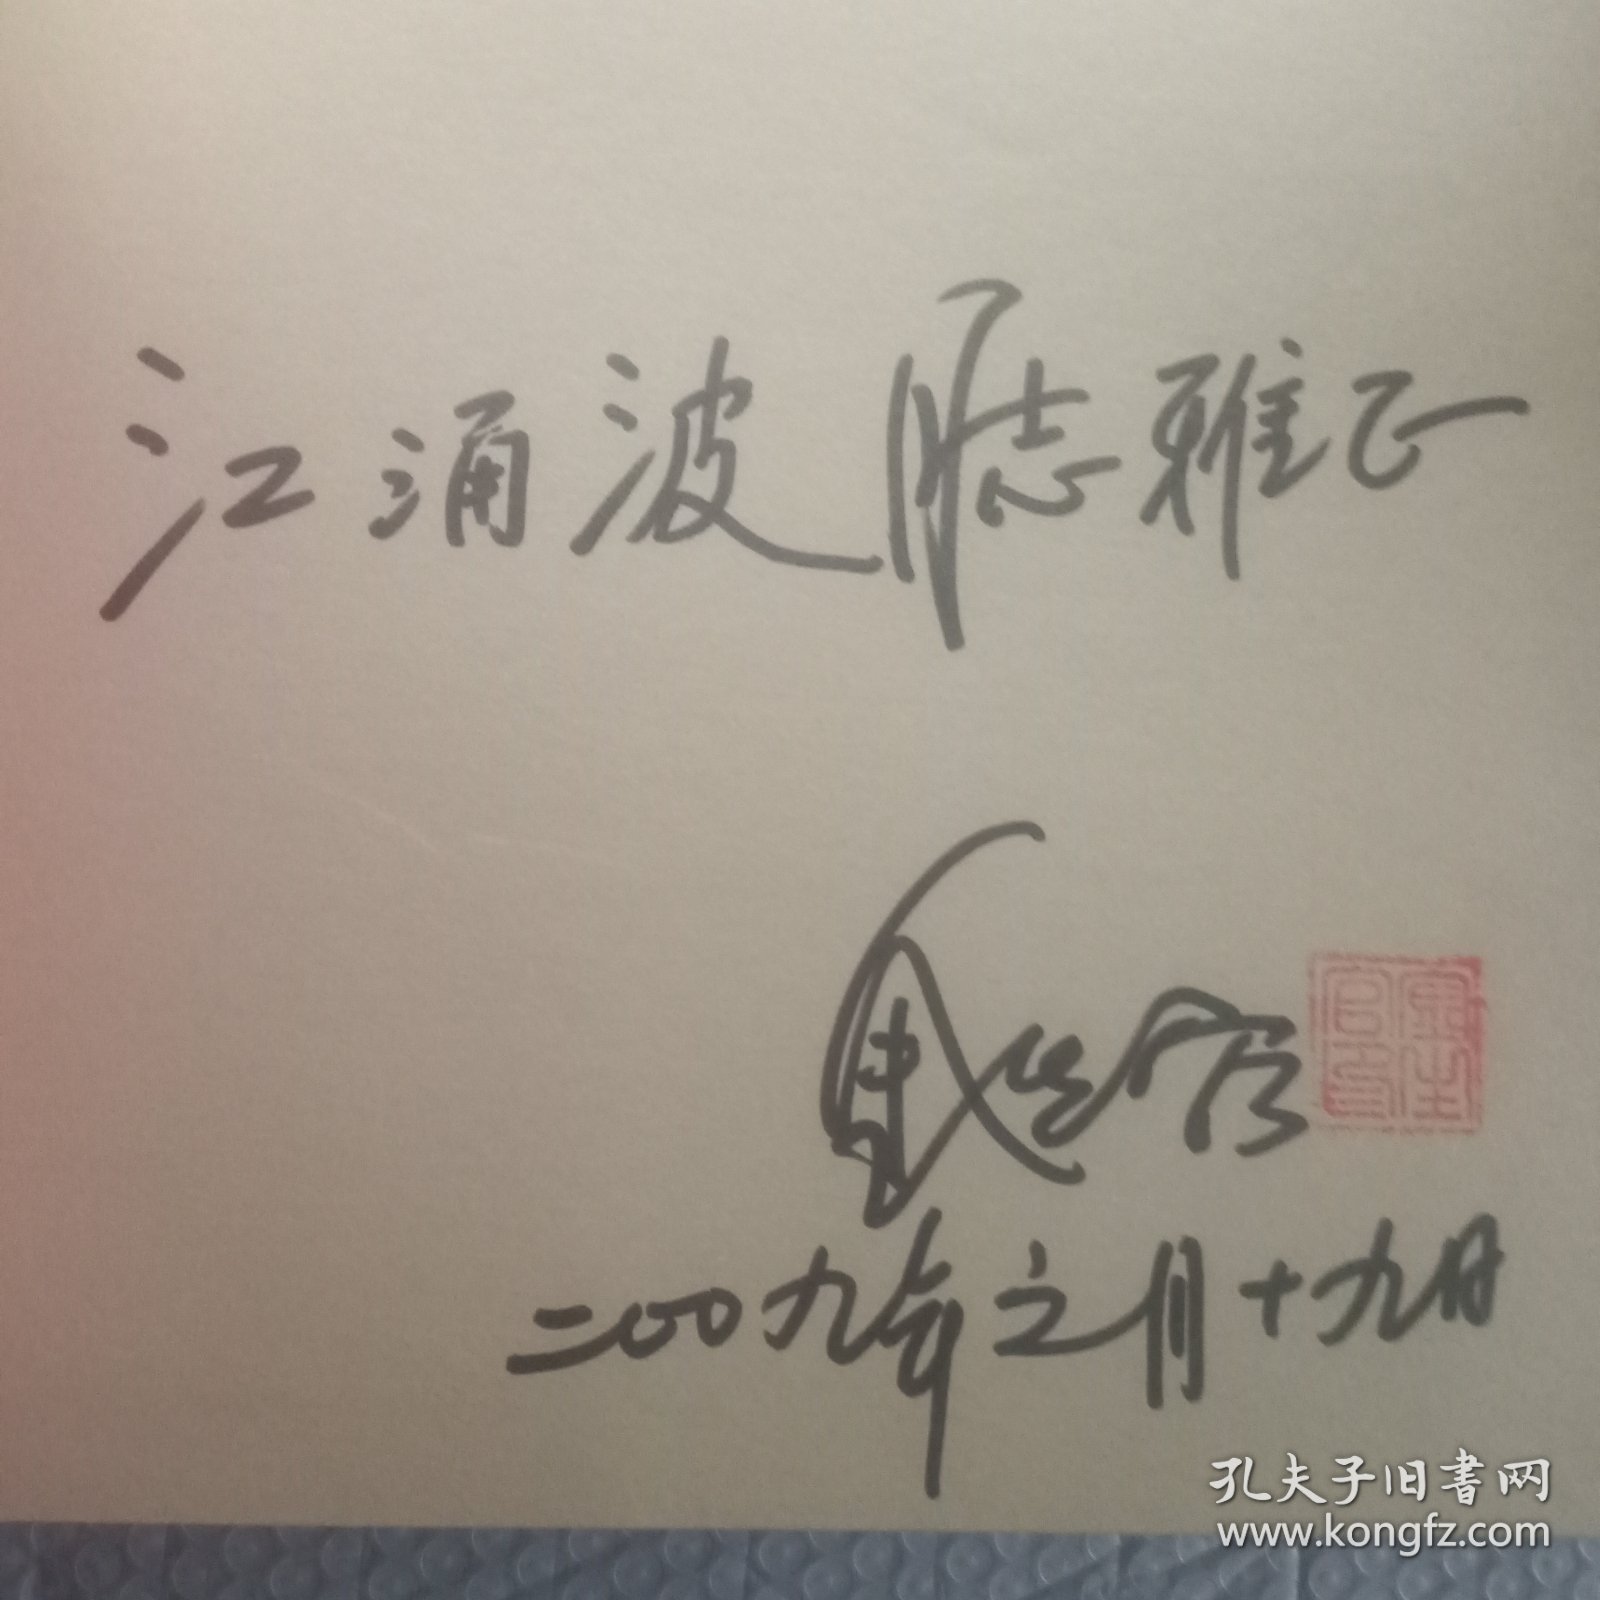 江涌波同志雅正
二00九年六月十九日
孔夫子旧书网
www.kongfz.com